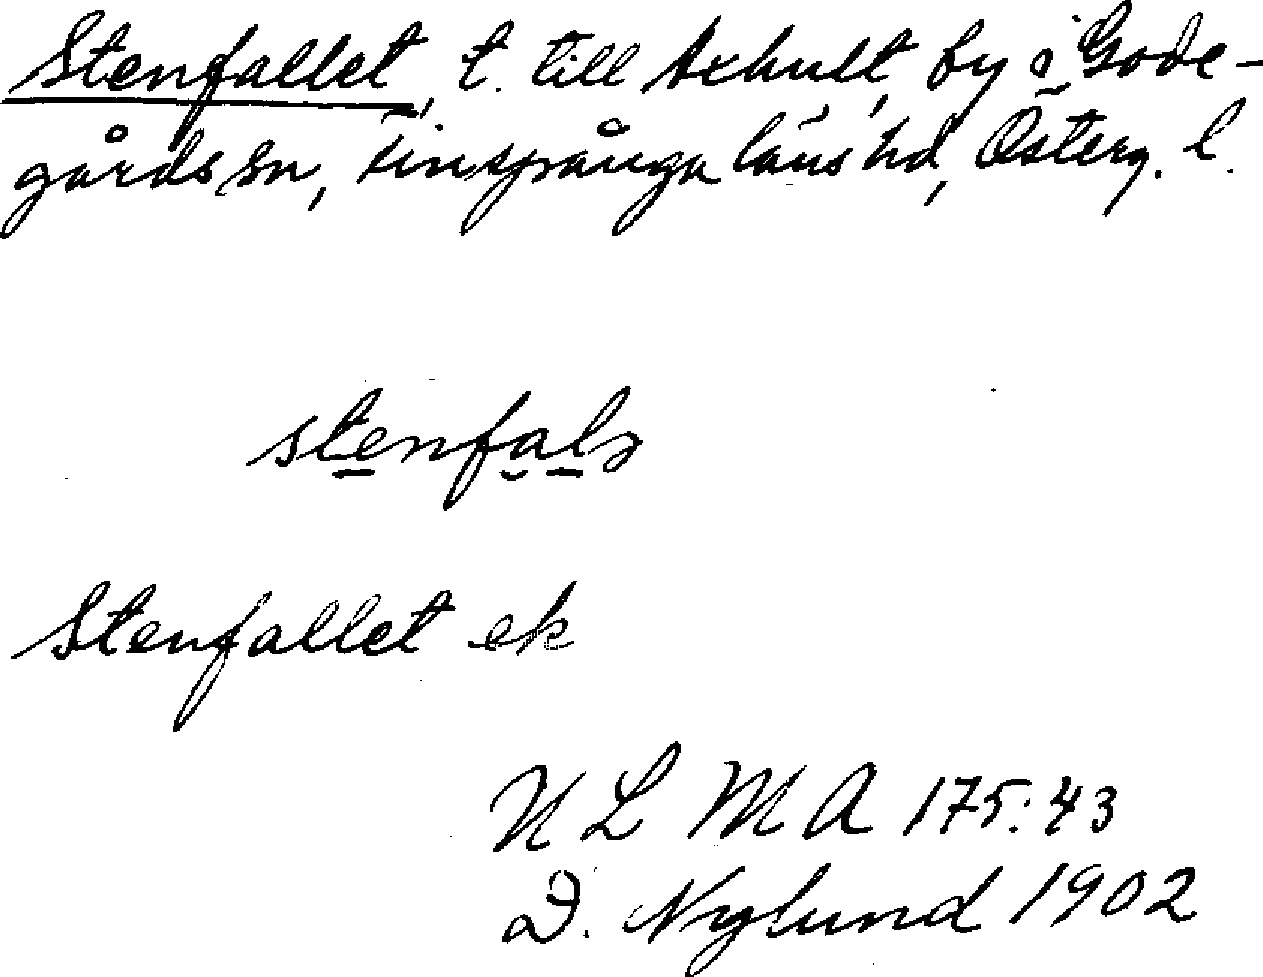 Stenfallet, t. till Axhult, by i Gode-
gårds sn, Finspånga läns hd, Österg. l.
stenfalz
Stenfallet ek
N L M A 175:43
D. Nylund 1902